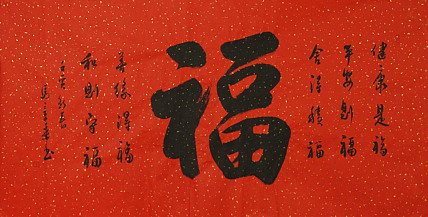 健康是福
平安則福
舍得積福
福
善緣得福
和則守福
壬寅新春
書